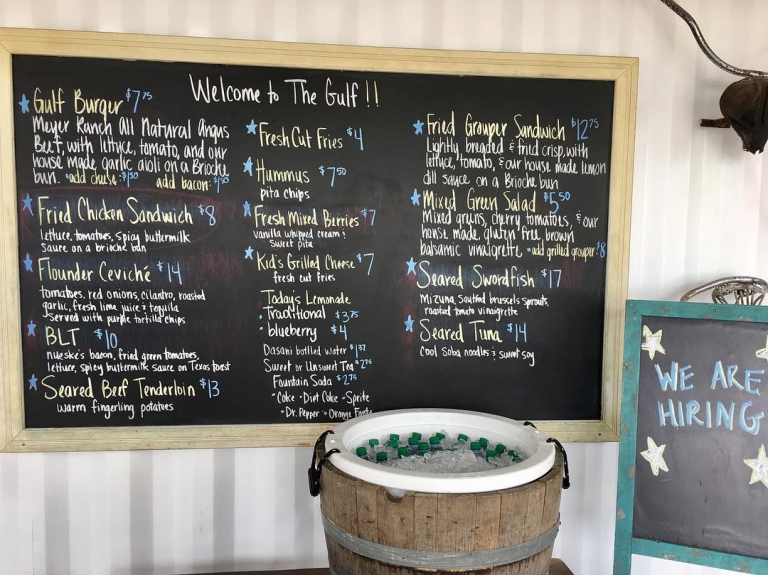 Welcome to The Gulf!!
Gulf Burger $7.75
Meyer Ranch All Natural Angus
Beef, with lettuce, tomato, and our
house made garlic aioli on a Brioche
bun. *add cheese: $1.50 add bacon: $1.50
Fried Chicken Sandwich $8
lettuce, tomatoes, spicy buttermilk
sauce on a brioche bun
Flounder Ceviché $14
tomatoes, red onions, cilantro, roasted
garlic, fresh lime juice & tequila
served with purple tortilla chips
BLT $10
nueske's bacon, fried green tomatoes,
lettuce, spicy buttermilk sauce on Texas toast
Seared Beef Tenderloin $13
warm fingerling potatoes
Fresh Cut Fries $4
Hummus $7.50
pita chips
Fresh Mixed Berries $7
vanilla whipped cream &
sweet pita
Kid's Grilled Cheese $7
fresh cut fries
Today's Lemonade
• Traditional $3.75
• blueberry $4
Dasani bottled water $1.37
Sweet or Unsweet Tea $2.75
Fountain Soda $2.75
• Coke • Diet Coke • Sprite
• Dr. Pepper • Orange Fanta
Fried Grouper Sandwich $12.75
Lightly breaded & fried crisp, with
lettuce, tomato, & our house made lemon
dill sauce on a Brioche bun
Mixed Green Salad $5.50
Mixed greens, cherry tomatoes, & our
house made, gluten free brown
balsamic vinaigrette • add grilled grouper: $8
Seared Swordfish $17
Mizuna, Sautéed brussels sprouts,
roasted tomato vinaigrette
Seared Tuna $14
cool soba noodles & sweet soy
WE ARE
HIRING